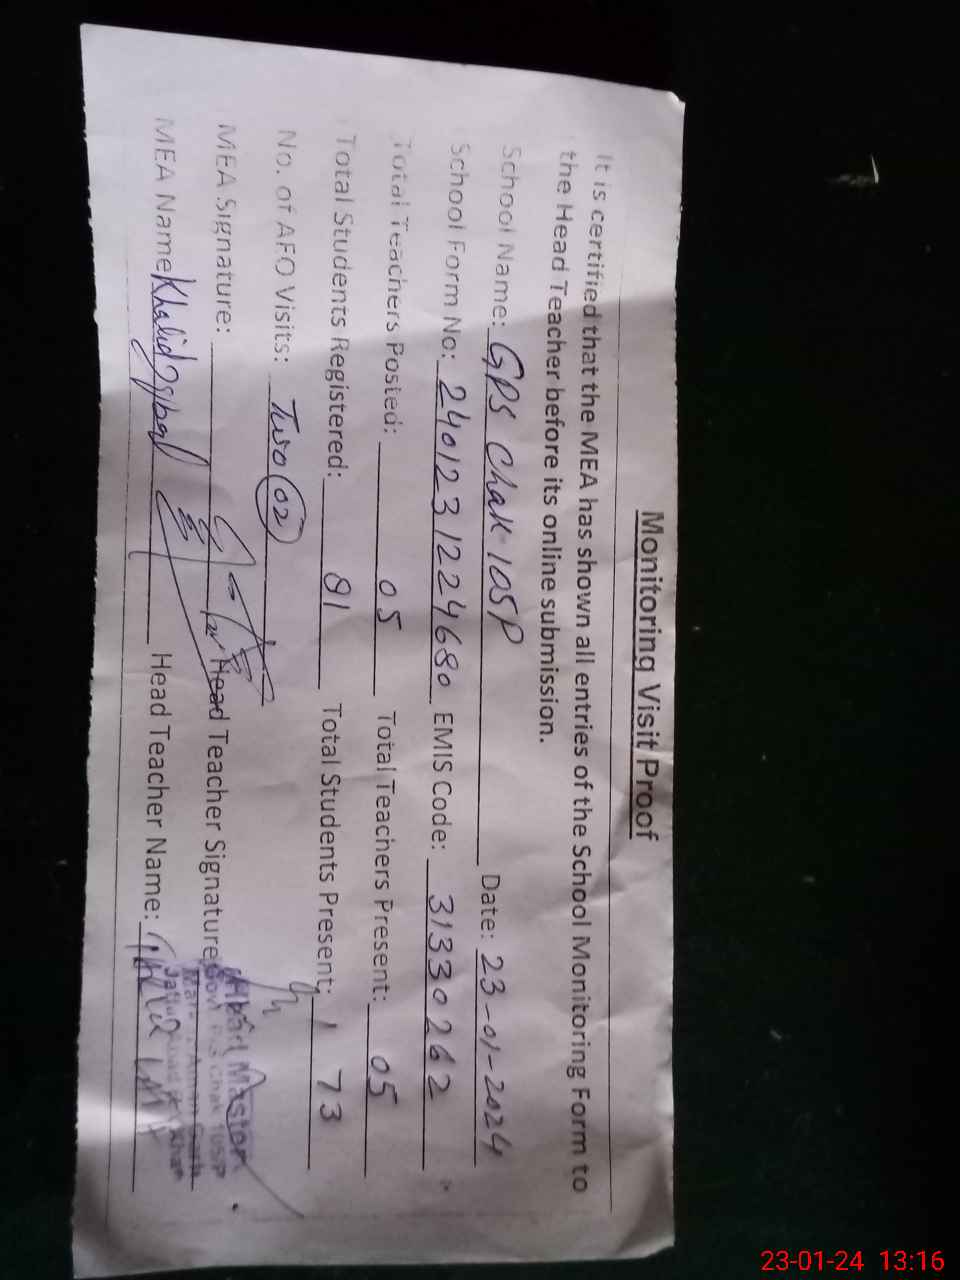 Monitoring Visit Proof
It is certified that the MEA has shown all entries of the School Monitoring Form to
the Head Teacher before its online submission.
School Name: GPS Chak 105P Date: 23-01-2024
School Form No: 240123122468​0 EMIS Code: 31330262
Total Teachers Posted: 05 Total Teachers Present: 05
Total Students Registered: 81 Total Students Present: 73
No. of AEO Visits: Two 02
MEA Signature: Head Teacher Signature
MEA Name Khalid Iqbal Head Teacher Name:
Head Master
Govt. Chak 105P
23-01-24 13:16